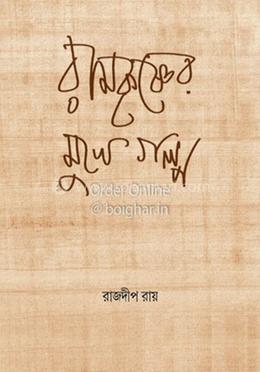 রামকৃষ্ণের
মুখে গল্প
Order Online
@ boighar.in
রাজদীপ রায়